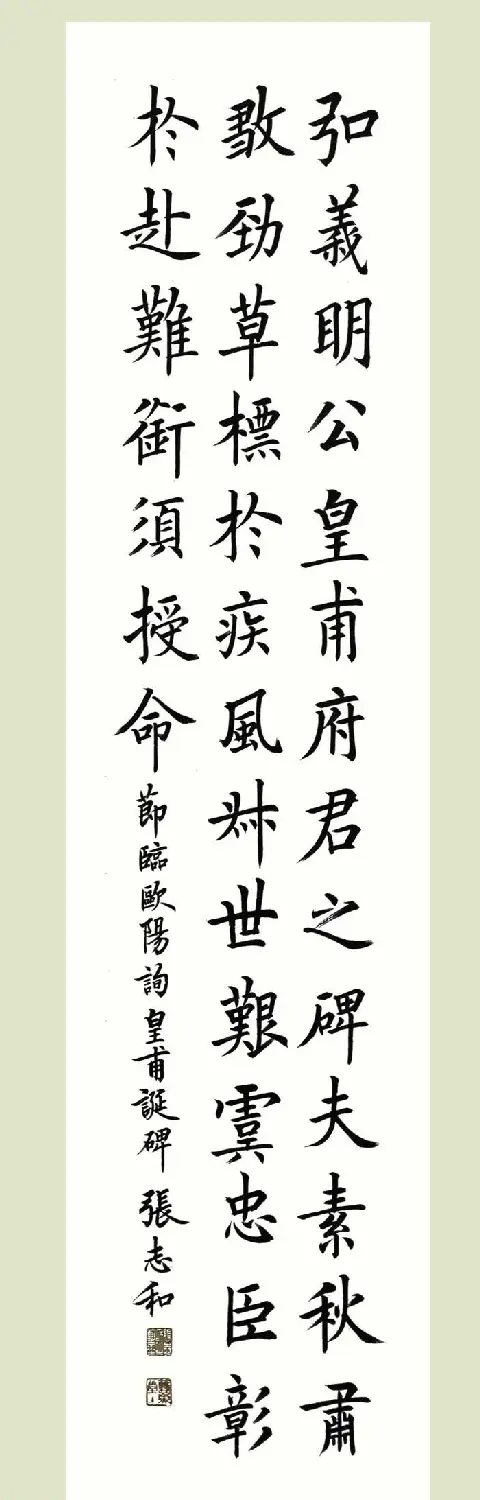 弘義明公皇甫府君之碑夫素秋肅
煞勁草標於疾風叔世艱虞忠臣彰
於赴難銜須授命 節臨歐陽詢皇甫誕碑 張志和